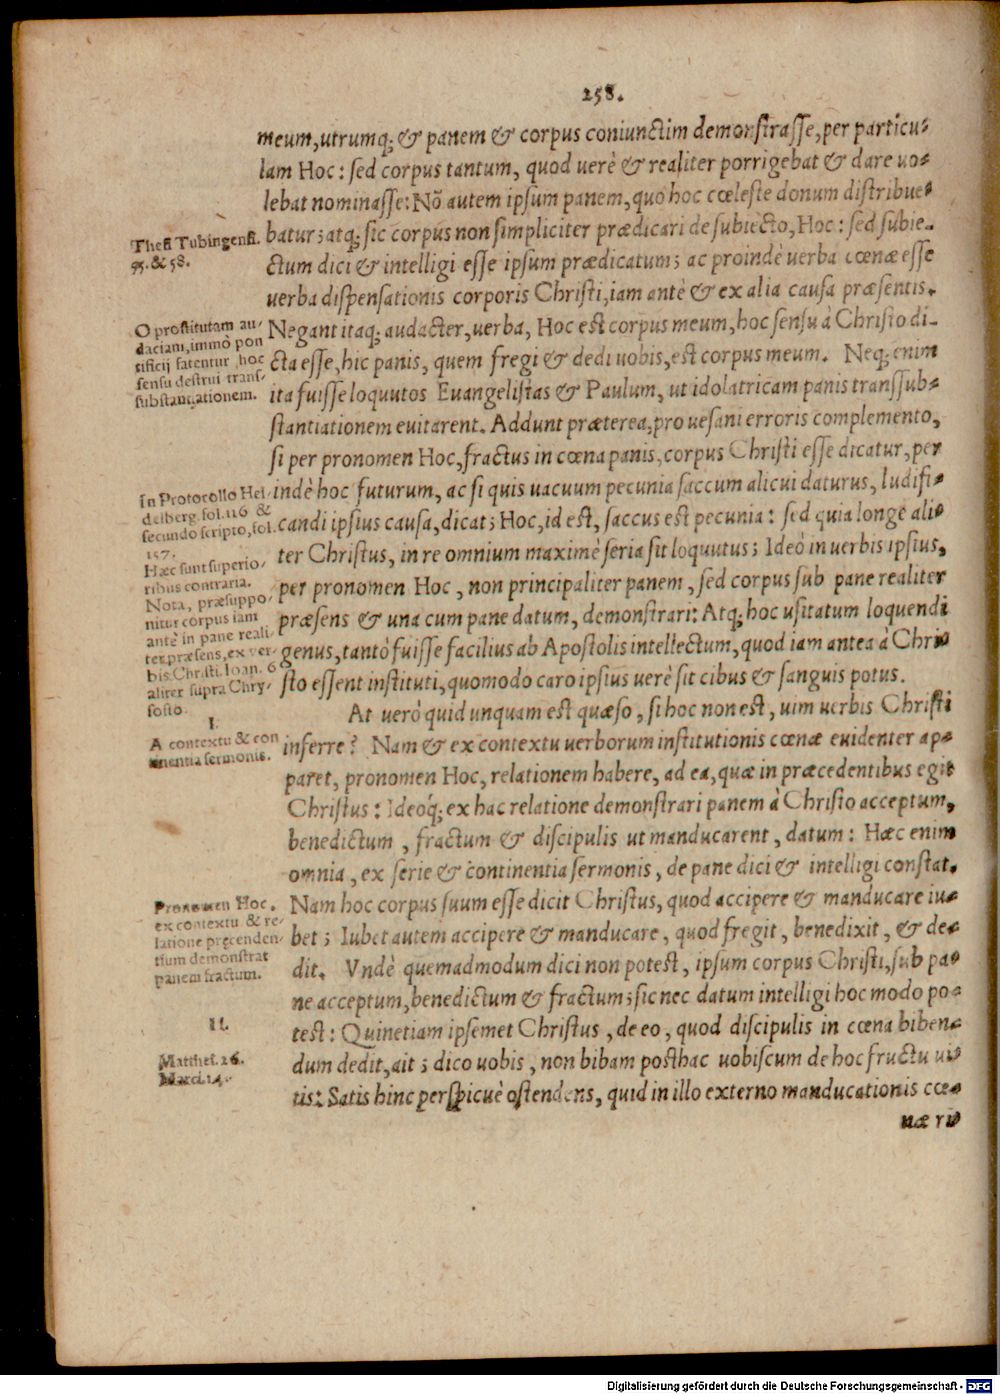 258.
meum, utrumq; & panem & corpus coniunctim demonſtraſſe, per particu-
lam Hoc: ſed corpus tantum, quod verè & realiter porrigebat & dare uo-
lebat nominaſſe: Nō autem ipſum panem, quo hoc cœleſte donum diſtribue-
Theſi Tubingenſi.
55. & 58.
batur; atq; ſic corpus non ſimpliciter prædicari de ſubiecto, Hoc: ſed ſubie-
ctum dici & intelligi eſſe ipſum prædicatum; ac proindè uerba cœnæ eſſe
uerba diſpenſationis corporis Chriſti, iam antè & ex alia cauſa præſentis.
O proſtitutam au-
daciam, immò pon
tificij fatentur hoc
ſenſu deſtrui tranſ-
ſubſtantiationem.
Negant itaq; audacter, uerba, Hoc eſt corpus meum, hoc ſenſu à Chriſto di-
cta eſſe, hic panis, quem fregi & dedi uobis, eſt corpus meum. Neq; enim
ita fuiſſe loquutos Euangeliſtas & Paulum, ut idolatricam panis tranſſub-
ſtantiationem euitarent. Addunt præterea, pro ueſani erroris complemento,
ſi per pronomen Hoc, fractus in cœna panis, corpus Chriſti eſſe dicatur, per
In Protocollo Hei-
delberg. fol. 116 &
ſecundo ſcripto, fol.
157.
indè hoc futurum, ac ſi quis uacuum pecunia ſaccum alicui daturus, ludifi-
candi ipſius cauſa, dicat; Hoc, id eſt, ſaccus eſt pecunia: ſed quia longè ali-
ter Chriſtus, in re omnium maximè ſeria ſit loquutus; Ideò in uerbis ipſius,
Hæc ſunt ſuperio-
ribus contraria.
Nota, præſuppo-
nitur corpus iam
antè in pane reali-
ter præſens, ex ver-
bis Chriſti. Ioan. 6
aliter ſupra Chry-
ſoſto.
per pronomen Hoc, non principaliter panem, ſed corpus ſub pane realiter
præſens & una cum pane datum, demonſtrari: Atq; hoc uſitatum loquendi
genus, tantò fuiſſe facilius ab Apoſtolis intellectum, quod iam antea à Chri-
ſto eſſent inſtituti, quomodo caro ipſius uerè ſit cibus & ſanguis potus.
I.
A contextu & con
tinentia ſermonis.
At uerò quid unquam eſt quæſo, ſi hoc non eſt, uim uerbis Chriſti
inferre? Nam & ex contextu uerborum inſtitutionis cœnæ euidenter ap-
paret, pronomen Hoc, relationem habere, ad ea, quæ in præcedentibus egit
Chriſtus: Ideoq́; ex hac relatione demonſtrari panem à Chriſto acceptum,
benedictum, fractum & diſcipulis ut manducarent, datum: Hæc enim
omnia, ex ſerie & continentia ſermonis, de pane dici & intelligi conſtat.
Pronomen Hoc.
ex contextu & re-
latione pręcenden-
tium demonſtrat
panem fractum.
Nam hoc corpus ſuum eſſe dicit Chriſtus, quod accipere & manducare iu-
bet; Iubet autem accipere & manducare, quod fregit, benedixit, & de-
dit. Vndè quemadmodum dici non poteſt, ipſum corpus Chriſti, ſub pa-
ne acceptum, benedictum & fractum; ſic nec datum intelligi hoc modo po-
II.
teſt: Quinetiam ipſemet Chriſtus, de eo, quod diſcipulis in cœna biben-
Matthei. 26.
Marci. 14.
dum dedit, ait; dico uobis, non bibam poſthac uobiſcum de hoc fructu ui-
tis: Satis hinc perſpicuè oſtendens, quid in illo externo manducationis cœ-
næ ri-
Digitalisierung gefördert durch die Deutsche Forschungsgemeinschaft - DFG